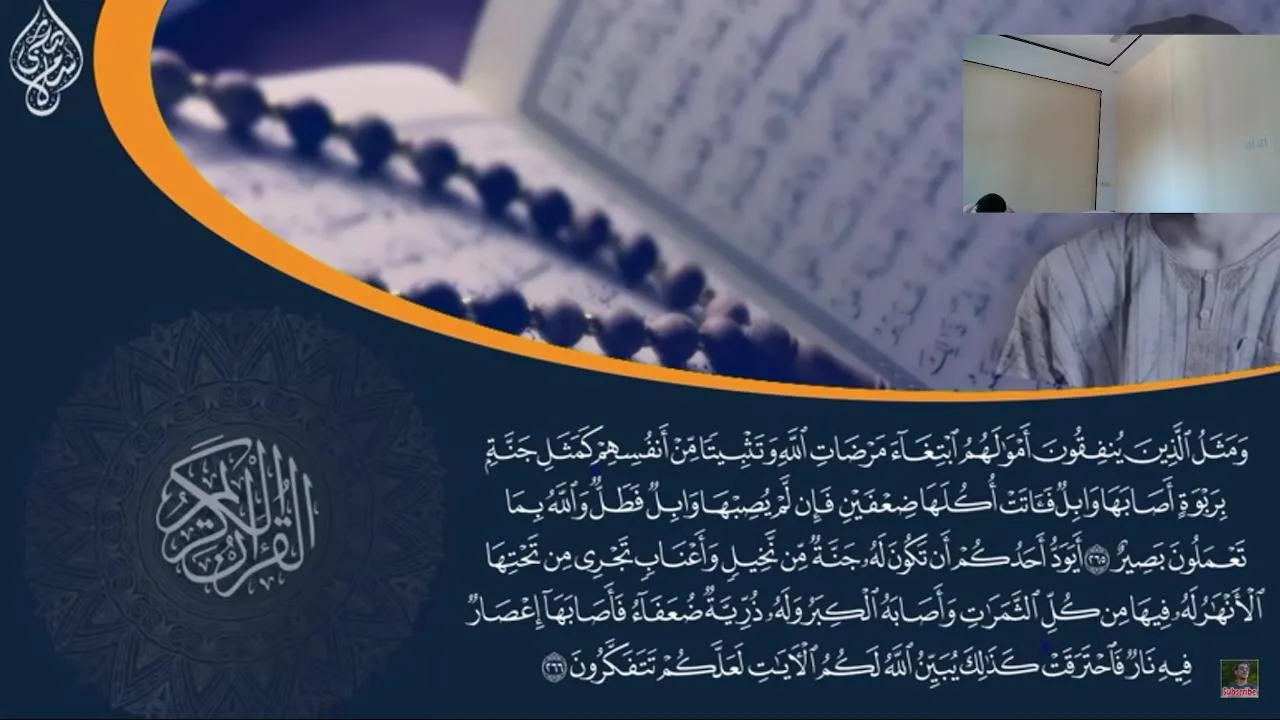 وَمَثَلُ ٱلَّذِينَ يُنفِقُونَ أَمْوَٰلَهُمُ ٱبْتِغَآءَ مَرْضَاتِ ٱللَّهِ وَتَثْبِيتًا مِّنْ أَنفُسِهِمْ كَمَثَلِ جَنَّةٍۭ
بِرَبْوَةٍ أَصَابَهَا وَابِلٌ فَـَٔاتَتْ أُكُلَهَا ضِعْفَيْنِ فَإِن لَّمْ يُصِبْهَا وَابِلٌ فَطَلٌّ وَٱللَّهُ بِمَا
تَعْمَلُونَ بَصِيرٌ ٢٦٥ أَيَوَدُّ أَحَدُكُمْ أَن تَكُونَ لَهُۥ جَنَّةٌ مِّن نَّخِيلٍ وَأَعْنَابٍ تَجْرِى مِن تَحْتِهَا
ٱلْأَنْهَٰرُ لَهُۥ فِيهَا مِن كُلِّ ٱلثَّمَرَٰتِ وَأَصَابَهُ ٱلْكِبَرُ وَلَهُۥ ذُرِّيَّةٌ ضُعَفَآءُ فَأَصَابَهَآ إِعْصَارٌ
فِيهِ نَارٌ فَٱحْتَرَقَتْ كَذَٰلِكَ يُبَيِّنُ ٱللَّهُ لَكُمُ ٱلْـَٔايَٰتِ لَعَلَّكُمْ تَتَفَكَّرُونَ ٢٦٦
القرآن الكريم
Subscribe